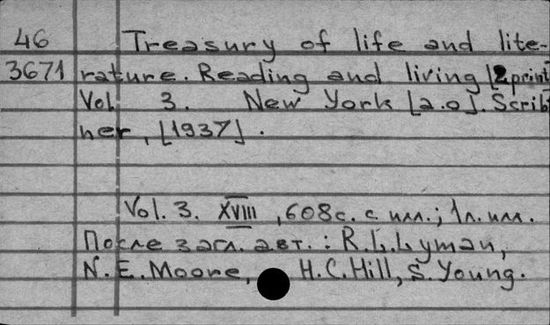 46 Treasury of life and lite-
3671 rature. Reading and living [2 print]
Vol. 3. New York [a.o]. Scrib
ner, [1937].
Vol. 3. XVIII, 608 с. с илл.; 1 л. илл.
После загл. авт.: R.L. Lyman,
N.E. Moore, H.C. Hill, S. Young.